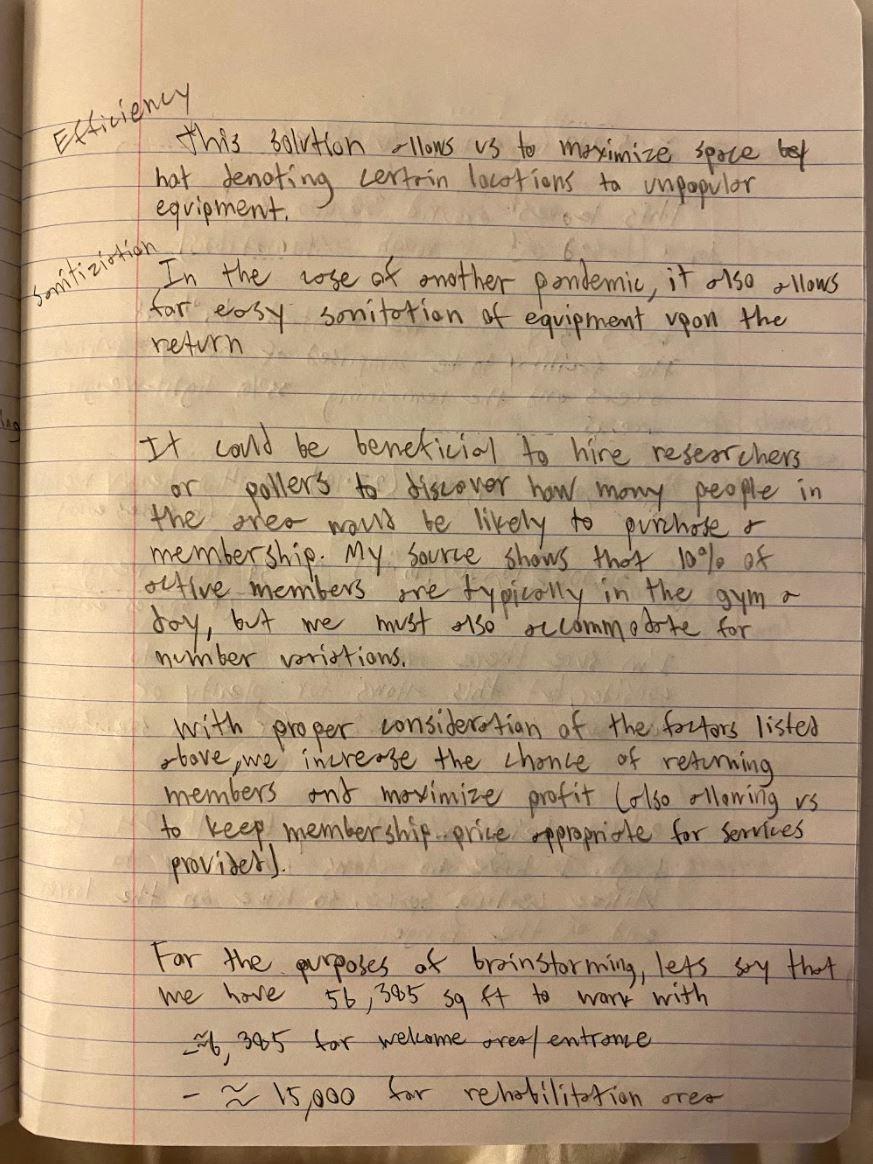 Efficiency
This solution allows us to maximize space by
not denoting certain locations to unpopular
equipment.
Sanitiziation
In the case of another pandemic, it also allows
for easy sanitation of equipment upon the
return
It could be beneficial to hire researchers
or pollers to discover how many people in
the area would be likely to purchase a
membership. My source shows that 10% of
active members are typically in the gym a
day, but we must also accommodate for
number variations.
With proper consideration of the factors listed
above, we increase the chance of returning
members and maximize profit (also allowing us
to keep membership price appropriate for services
provided).
For the purposes of brainstorming, lets say that
we have 56,385 sq ft to work with
- ≈6,385 for welcome area/entrance
- ≈ 15,000 for rehabilitation area